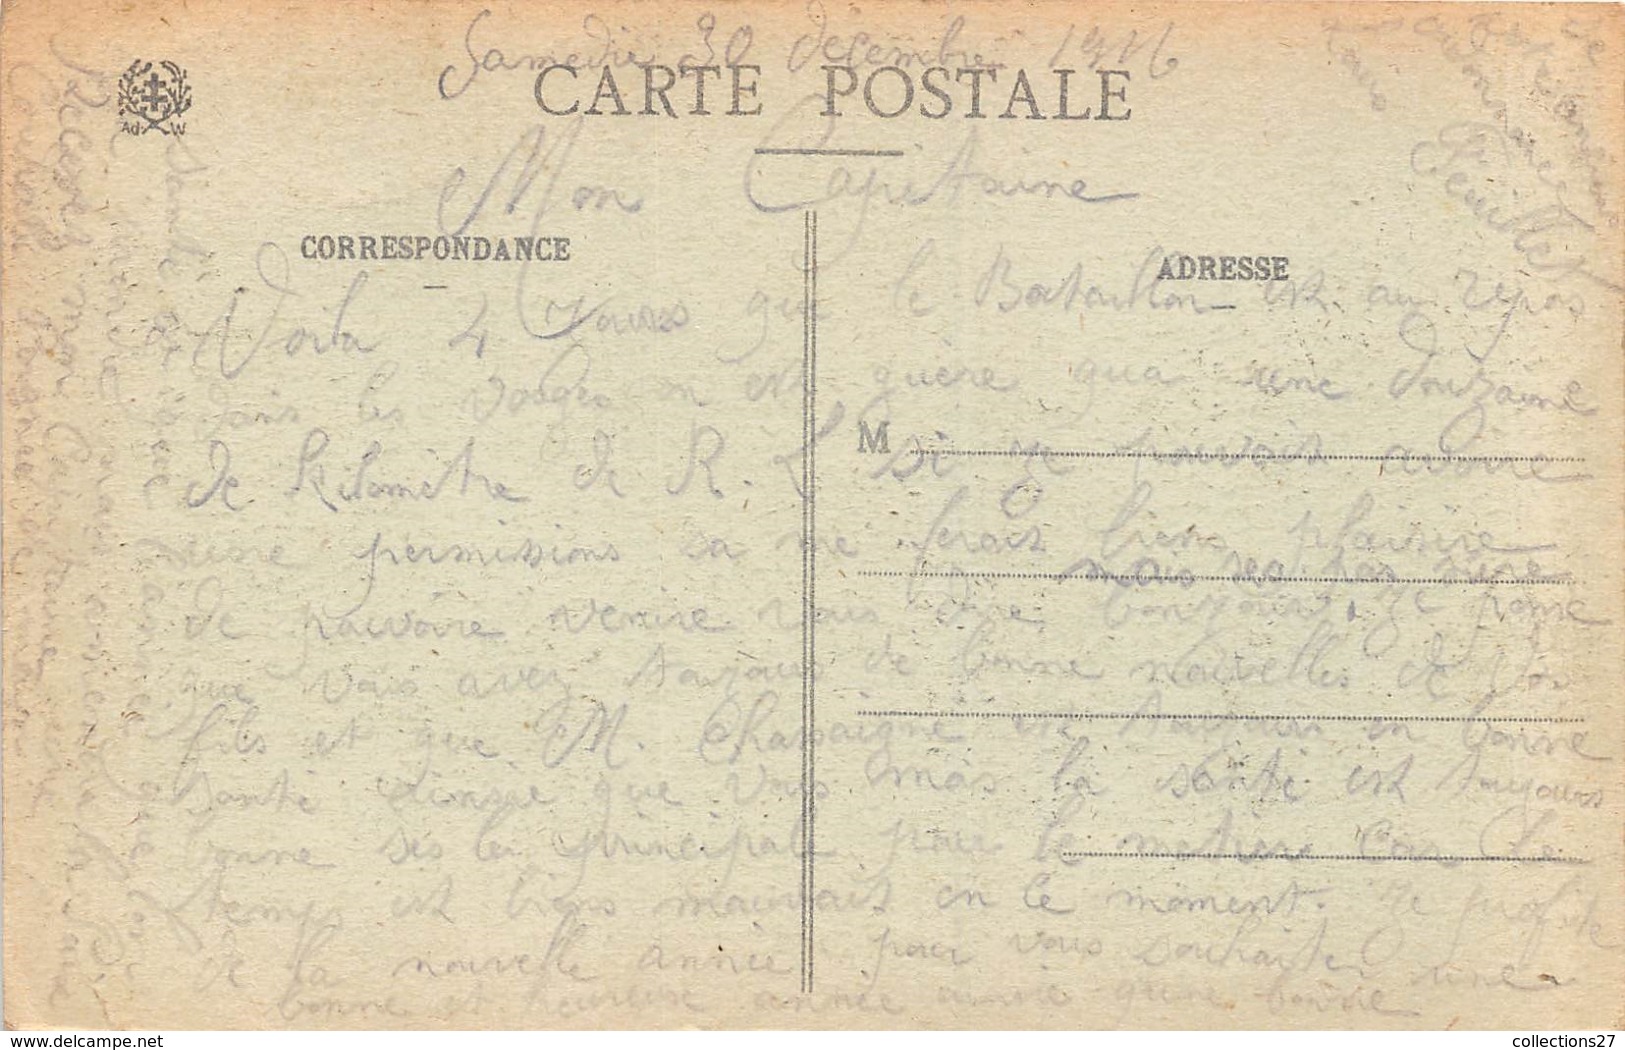 Samedie 30 décembre 1916
CARTE POSTALE
Ad W
Mon Capitaine
CORRESPONDANCE
ADRESSE
Voila 4 Jours que le Bataillon est au repos
dans les Vosges on est guère qua une douzaine
de Kilomètre de R. L si je pouvais avoire
M
une permissions sa me ferais biens plaisire
mais pas sure
de pouvoire venire vous dire bonjours. Je pense
que vous avez toujours de bonne nouvelles de vos
fils et que M. Chassaigne est toujours en bonne
santé ainsie que vous mois la santé est toujours
bonne ses le principale pour le metiere Car le
temps est biens mauvais en le moment. Je profite
de la nouvelle année pour vous souhaite une
bonne et heureuse année ainsie qune bonne
santé
Recevez mon Capitaine
collections27